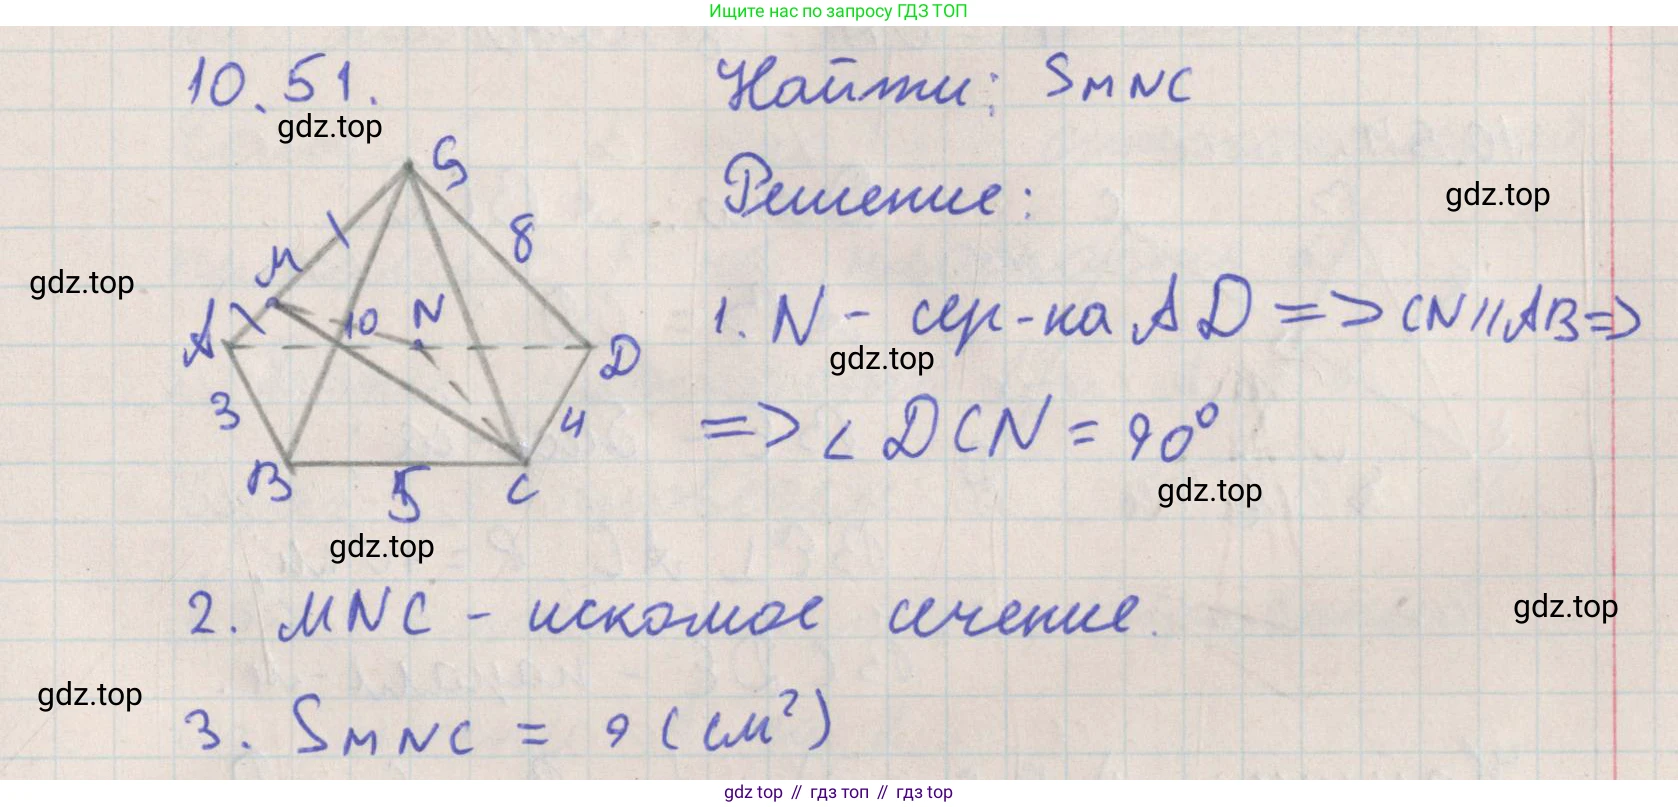 Ищите нас по запросу ГДЗ ТОП
10.51.
Найти: SMNC
gdz.top
S
Решение:
gdz.top
8
M
gdz.top
10
N
A
D
1. N - сер-ка AD => CN || AB =>
gdz.top
3
4
=> ∠ DCN = 90°
B
5
C
gdz.top
gdz.top
2. MNC - искомое сечение.
gdz.top
gdz.top
3. SMNC = 9 (см²)
gdz top // гдз топ // гдз top